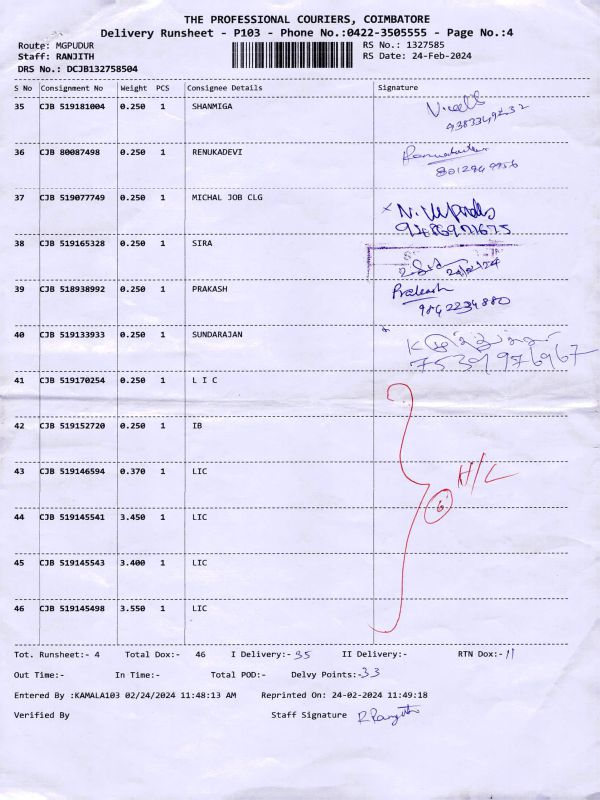 THE PROFESSIONAL COURIERS, COIMBATORE
Delivery Runsheet - P103 - Phone No.:0422-3505555 - Page No.:4
Route: MGPUDUR RS No.: 1327585
Staff: RANJITH RS Date: 24-Feb-2024
DRS No.: DCJB132758504
S No Consignment No Weight PCS Consignee Details Signature
35 CJB 519181004 0.250 1 SHANMIGA
36 CJB 80087498 0.250 1 RENUKADEVI
37 CJB 519077749 0.250 1 MICHAL JOB CLG
38 CJB 519165328 0.250 1 SIRA
24/2/24
39 CJB 518938992 0.250 1 PRAKASH Prakash
9842234880
40 CJB 519133933 0.250 1 SUNDARAJAN
7539976967
41 CJB 519170254 0.250 1 L I C
42 CJB 519152720 0.250 1 IB
43 CJB 519146594 0.370 1 LIC H/L
6
44 CJB 519145541 3.450 1 LIC
45 CJB 519145543 3.400 1 LIC
46 CJB 519145498 3.550 1 LIC
Tot. Runsheet:- 4 Total Dox:- 46 I Delivery:- 35 II Delivery:- RTN Dox:- 11
Out Time:- In Time:- Total POD:- Delvy Points:- 33
Entered By :KAMALA103 02/24/2024 11:48:13 AM Reprinted On: 24-02-2024 11:49:18
Verified By Staff Signature R. Ranjith